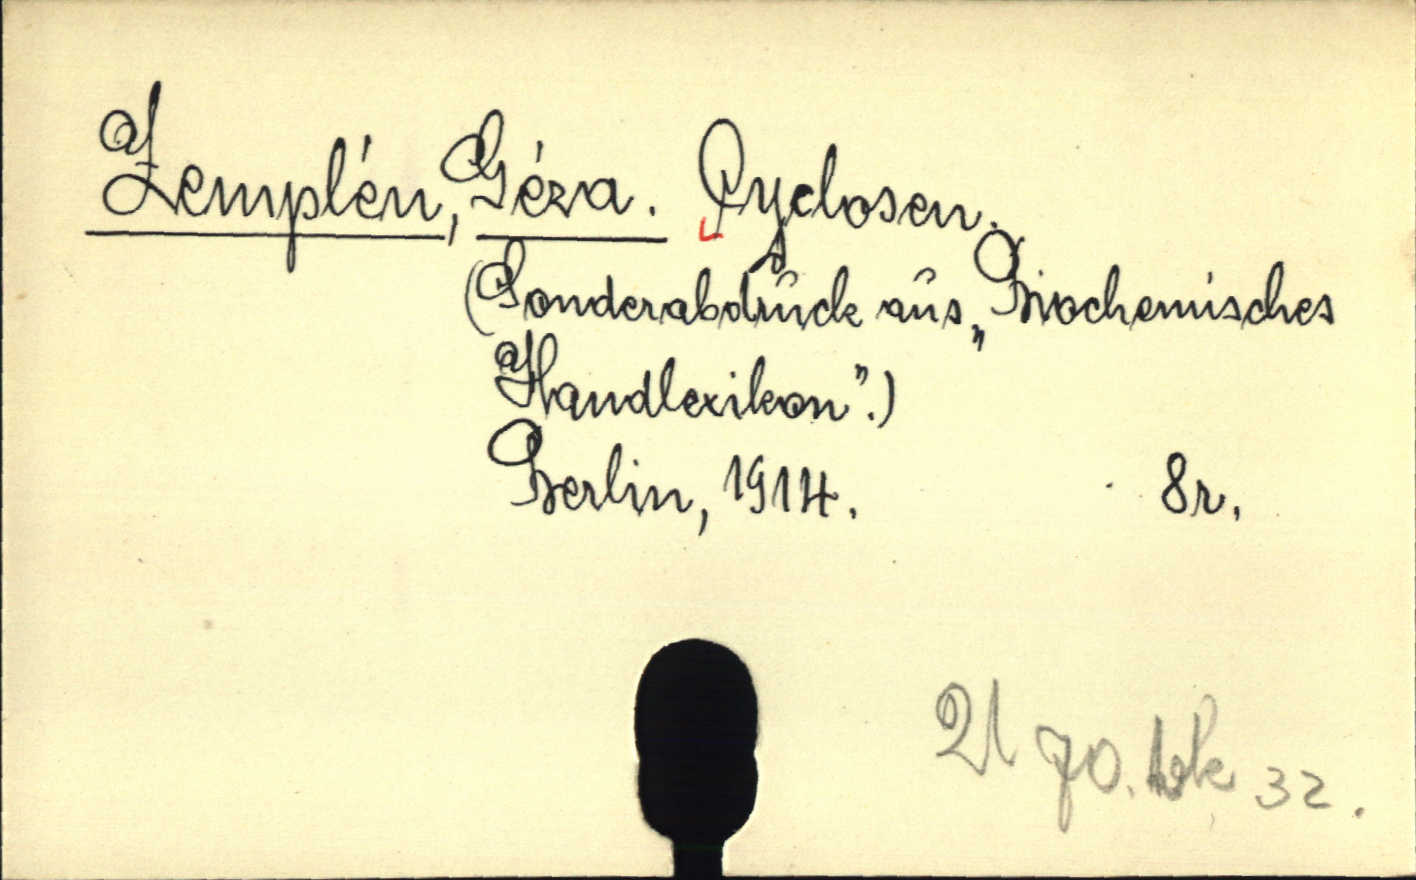 Zemplén, Géza. Cyclosen.
(Sonderabdruck aus „Biochemisches
Handlexikon".)
Berlin, 1914. 8r.
32.